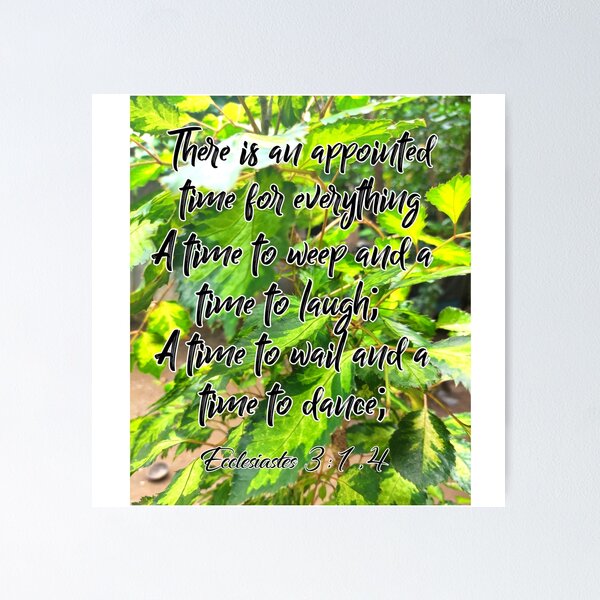 There is an appointed
time for everything
A time to weep and a
time to laugh;
A time to wail and a
time to dance;
Ecclesiastes 3:1.4